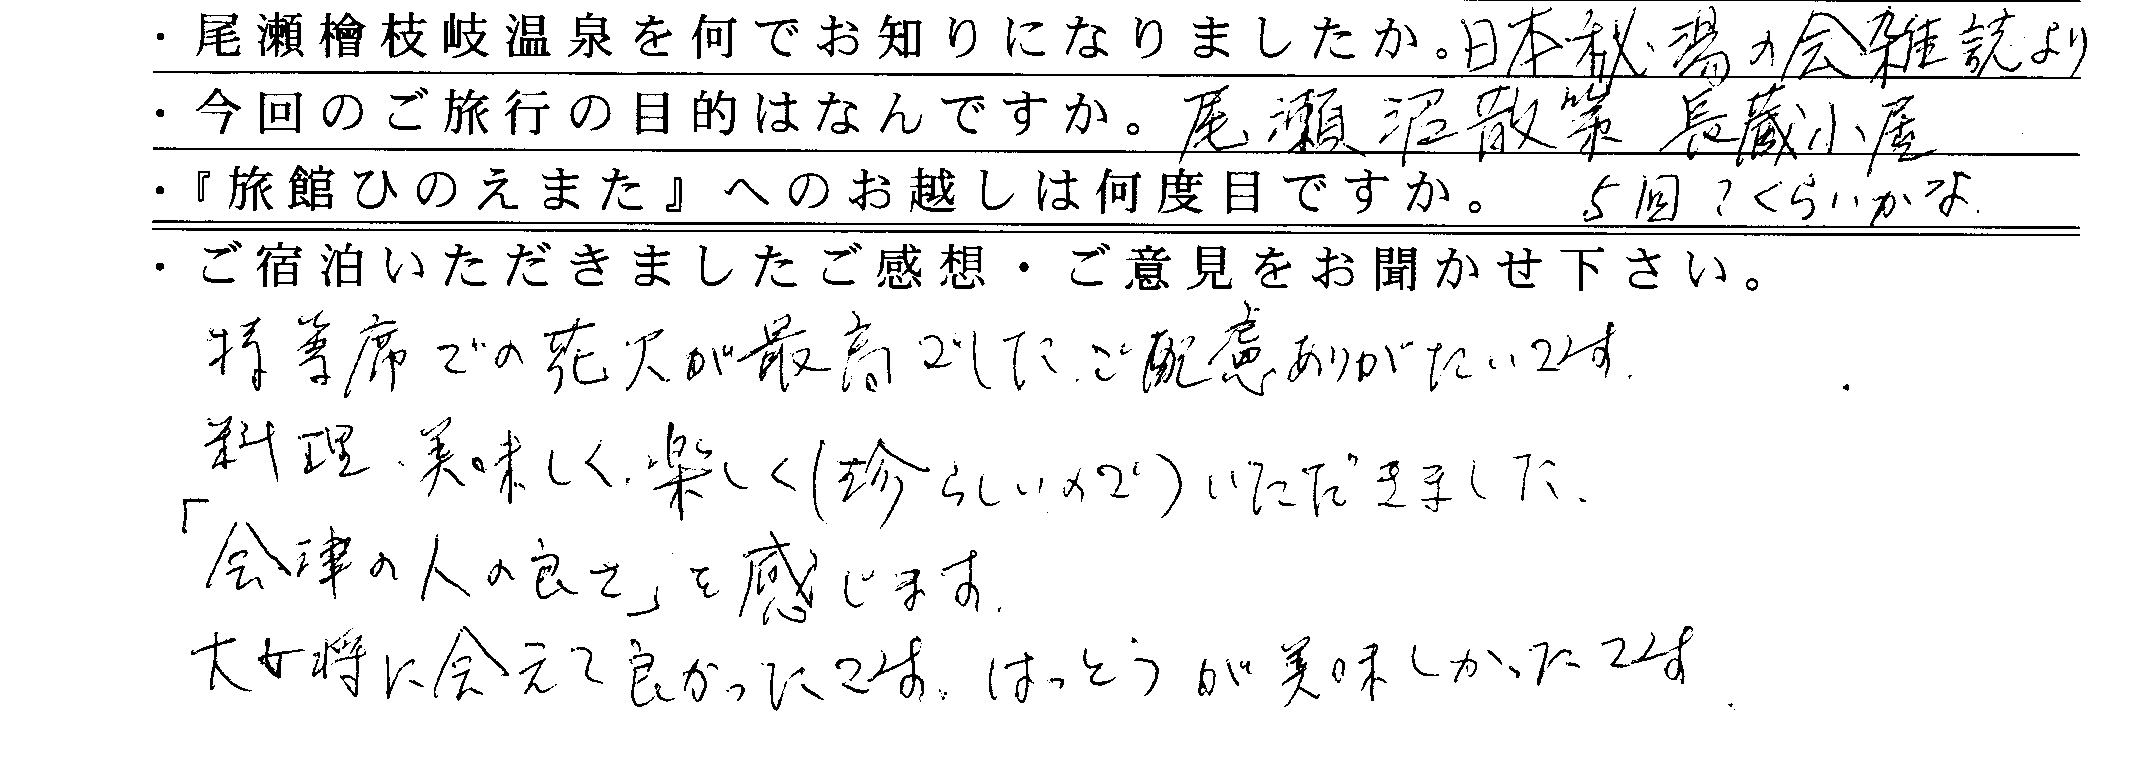 ・尾瀬檜枝岐温泉を何でお知りになりましたか。日本秘湯の会雑誌より
・今回のご旅行の目的はなんですか。尾瀬沼散策 長蔵小屋
・『旅館ひのえまた』へのお越しは何度目ですか。 5回?くらいかな.
・ご宿泊いただきましたご感想・ご意見をお聞かせ下さい。
特等席での花火が最高でした.ご配慮ありがたいです.
料理.美味しく.楽しく(珍らしいので)いただきました.
「会津の人の良さ」を感じます.
大女将に会えて良かったです.はっとうが美味しかったです.